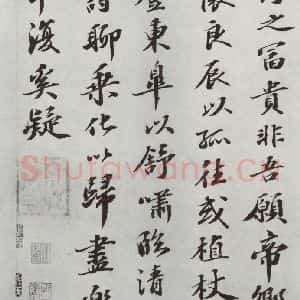 之冨貴非吾願帝鄉
懷良辰以孤往或植杖
登東皋以舒嘯臨清
詩聊乘化以歸盡樂
復奚疑
Shufawang.CN